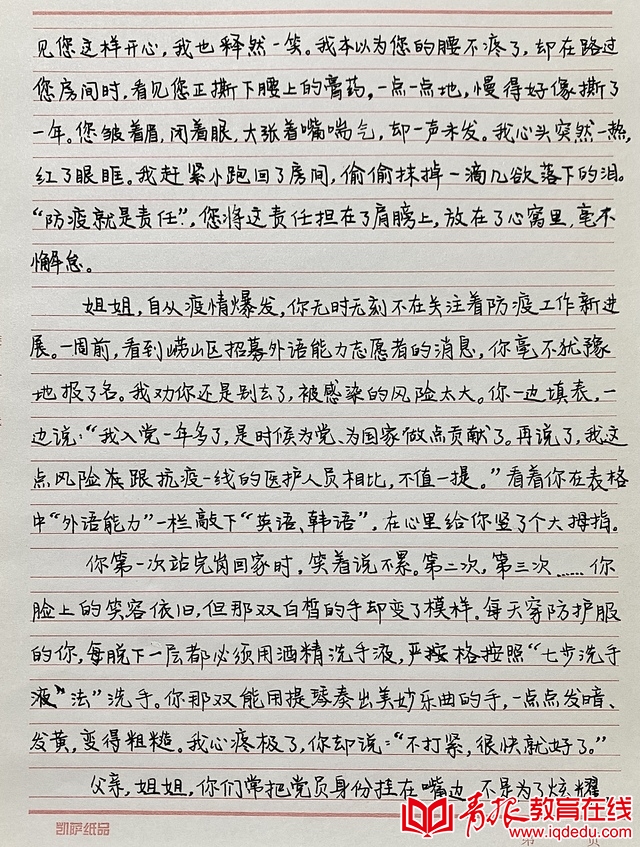 见您这样开心，我也释然一笑。我本以为您的腰不疼了，却在路过
您房间时，看见您正撕下腰上的膏药，一点一点地，慢得好像撕了
一年。您皱着眉，闭着眼，大张着嘴喘气，却一声未发。我心头突然一热，
红了眼眶。我赶紧小跑回了房间，偷偷抹掉一滴几欲落下的泪。
“防疫就是责任”，您将这责任担在了肩膀上，放在了心窝里，毫不
懈怠。
姐姐，自从疫情爆发，你无时无刻不在关注着防疫工作新进
展。一周前，看到崂山区招募外语能力志愿者的消息，你毫不犹豫
地报了名。我劝你还是别去了，被感染的风险太大。你一边填表，一
边说：“我入党一年多了，是时候为党、为国家做点贡献了。再说了，我这
点风险跟抗疫一线的医护人员相比，不值一提。”看着你在表格
中“外语能力”一栏敲下“英语、韩语”，在心里给你竖了个大拇指。
你第一次站完岗回家时，笑着说不累。第二次，第三次……你
脸上的笑容依旧，但那双白皙的手却变了模样。每天穿防护服
的你，每脱下一层都必须用酒精洗手液，严格按照“七步洗手
法”洗手。你那双能用提琴奏出美妙乐曲的手，一点点发暗、
发黄，变得粗糙。我心疼极了，你却说：“不打紧，很快就好了。”
父亲，姐姐，你们常把党员身份挂在嘴边，不是为了炫耀
凯萨纸品
第 页
青报教育在线
www.iqdedu.com